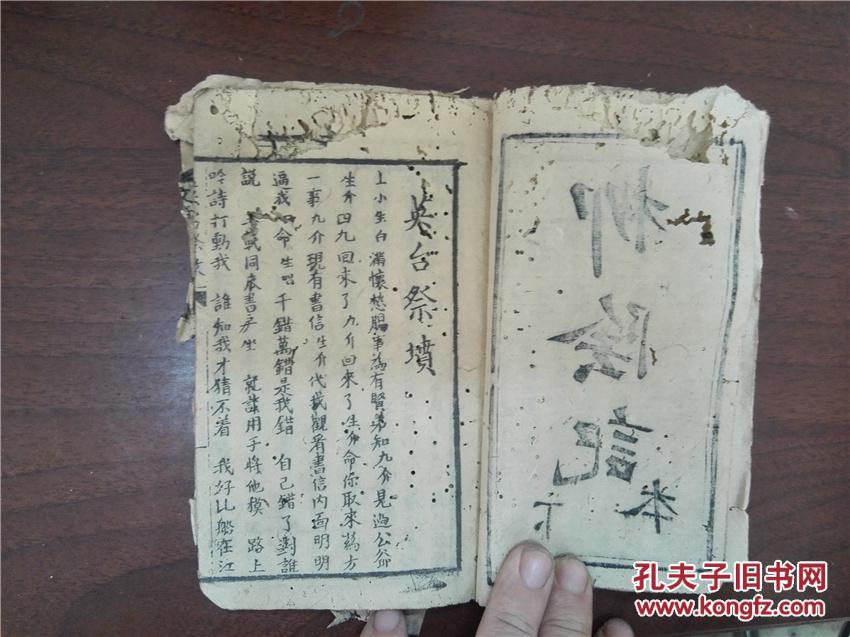 柳陰記
下本
英台祭墳
上小生白滿懷愁腸事為有賢弟知九介見過公爺
生介四九回來了九介回來了生介命你取來葯方
一事九介現有書信生介代我觀看書信內面明明
逼我命生唱千錯萬錯是我錯 自己錯了對誰
說 我同本書房坐 就該用手將他摸 路上
吟詩打動我 誰知我才猜不着 我好比船在江
孔夫子旧书网
www.kongfz.com